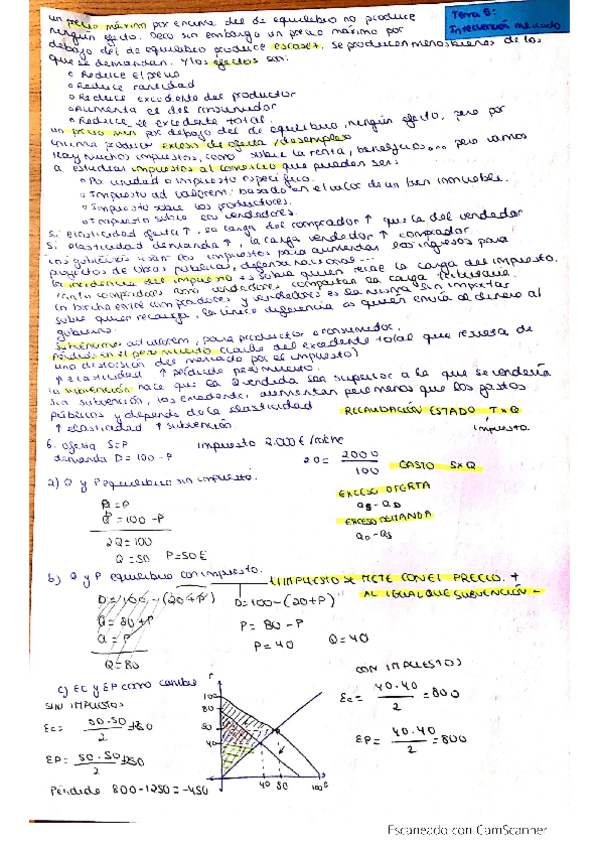 Tema 5:
Intervención mercado
un precio máximo por encima del de equilibrio no produce
ningún efecto. Pero sin embargo un precio máximo por
debajo del de equilibrio produce escasez. Se producen menos bienes de los
que se demandan. Y los efectos son:
o Reduce el precio
o Reduce cantidad
o Reduce excedente del productor
o Aumenta el del consumidor
o Reduce el excedente total.
un precio min por debajo del de equilibrio, ningún efecto, pero por
encima produce exceso de oferta, desempleo
Hay muchos impuestos, como sobre la renta, beneficios... pero vamos
a estudiar impuestos al comercio que pueden ser:
o Por unidad o impuesto específico.
o Impuesto ad valorem: basado en el valor de un bien inmueble.
o Impuesto sobre los productores.
o Impuesto sobre los vendedores.
Si elasticidad oferta ↑, la carga del comprador ↑ que la del vendedor
Si elasticidad demanda ↑, la carga vendedor ↑ comprador
Los gobiernos usan los impuestos para aumentar los ingresos para
proyectos de obras públicas, defensa nacional...
La incidencia del impuesto es sobre quien recae la carga del impuesto.
Tanto compradores como vendedores comparten la carga tributaria.
La brecha entre compradores y vendedores es la misma sin importar
sobre quien recaiga, la única diferencia es quien envía el dinero al
gobierno.
ad valorem, para productor o consumidor.
Pérdida en el peso muerto (caída del excedente total que resulta de
una distorsión del mercado por el impuesto)
↑ elasticidad ↑ pérdida peso muerto.
La subvención hace que la Q vendida sea superior a la que se vendería
sin subvención, los excedentes aumentan pero menos que los gastos
públicos y depende de la elasticidad
↑ elasticidad ↑ subvención
RECAUDACIÓN ESTADO T×Q
impuesto
6. Oferta S=P impuesto 2.000€/
demanda D=100-P
20 = 2000/100
GASTO S×Q
a) Q y P equilibrio sin impuesto.
EXCESO OFERTA
Qs - QD
EXCESO DEMANDA
QD - Qs
Q=P
Q=100-P
2Q=100
Q=50 P=50€
b) Q y P equilibrio con impuesto.
EL IMPUESTO SE METE CON EL PRECIO. +
AL IGUAL QUE SUBVENCIÓN -
D=100-(20+P) D=100-(20+P)
Q=80+P P=80-P
Q=P P=40 Q=40
Q=80
c) EC y EP como cambia
SIN IMPUESTOS
EC= 50·50/2 =1250
EP= 50·50/2 =1250
Pérdida 800-1250=-450
P
100
80
50
40
40 50 100 Q
CON IMPUESTOS
EC= 40·40/2 =800
EP= 40·40/2 =800
Escaneado con CamScanner